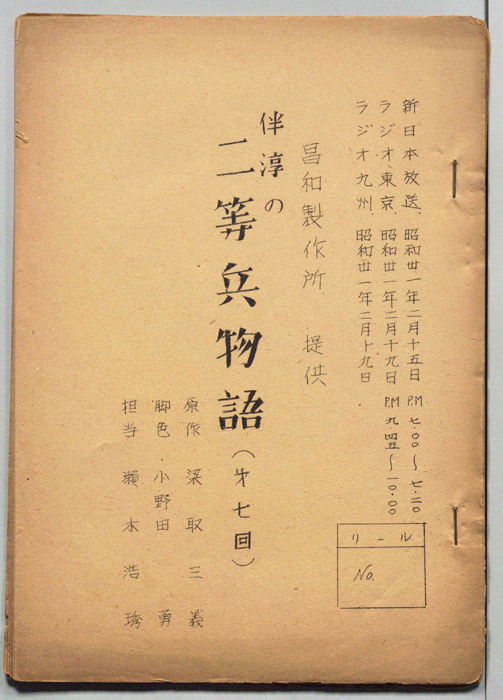 新日本放送、昭和丗一年二月十五日 P.M. 七.00〜七.二0
ラジオ東京、昭和丗一年二月十九日 P.M 九.四五〜一0.00
ラジオ九州、昭和丗一年二月十九日
昌和製作所 提供
伴淳の
二等兵物語(㐧七回)
原作 梁取三義
脚色・小野田 勇
担当 瀬木浩琇
リール
No.